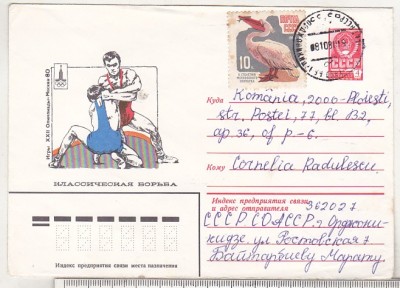 Игры XXII Олимпиады • Москва 80
КЛАССИЧЕСКАЯ БОРЬБА
10
СССР
Куда Romania, 2000-Ploiești,
str. Poștei, 77, bl. B2,
ap 36, of p-6.
Кому Cornelia Radulescu.
Индекс предприятия связи
и адрес отправителя 362027
СССР СОАССР. г Орджони-
кидзе, ул Ростовская 7
Марату.
Индекс предприятия связи места назначения